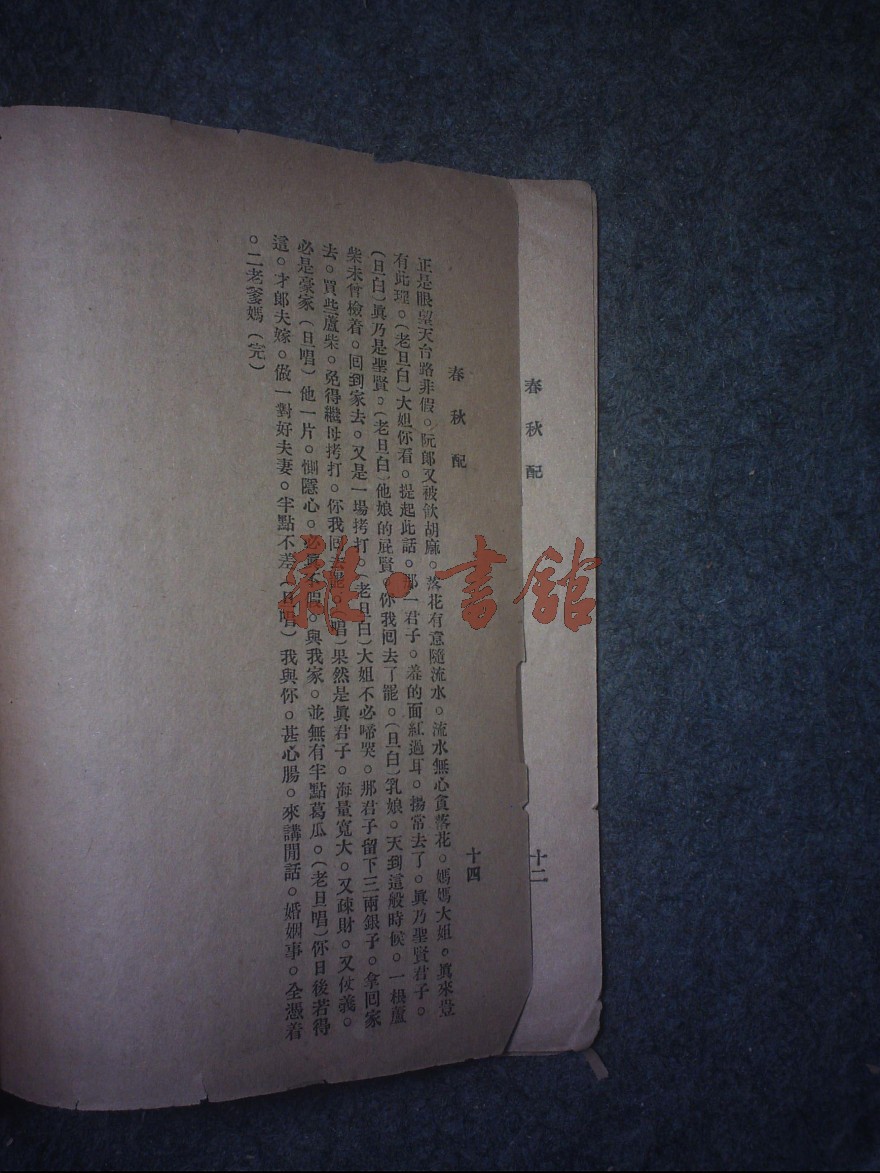 春秋配
十二
春秋配
十四
正是眼望天台路非假。阮郎又被飲胡麻。落花有意隨流水。流水無心貪落花。媽媽大姐。眞來豈
有此理。(老旦白)大姐你看。提起此話。那一君子。羞的面紅過耳。揚常去了。眞乃聖賢君子。
(旦白)眞乃是聖賢。(老旦白)他娘的屁賢。你我回去了罷。(旦白)乳娘。天到這般時候。一根蘆
柴未曾檢着。回到家去。又是一場拷打。(老旦白)大姐不必啼哭。那君子留下三兩銀子。拿回家
去。買些蘆柴。免得繼母拷打。你我回去罷。唱)果然是眞君子。海量寬大。又疎財。又仗義。
必是豪家(旦唱)他一片。惻隱心。必眞不假。與我家。並無有半點葛瓜。(老旦唱)你日後若得
這。才郎夫嫁。做一對好夫妻。半點不差(旦唱)我與你。甚心腸。來講閒話。婚姻事。全憑着
。二老爹媽(完)
雜·書館